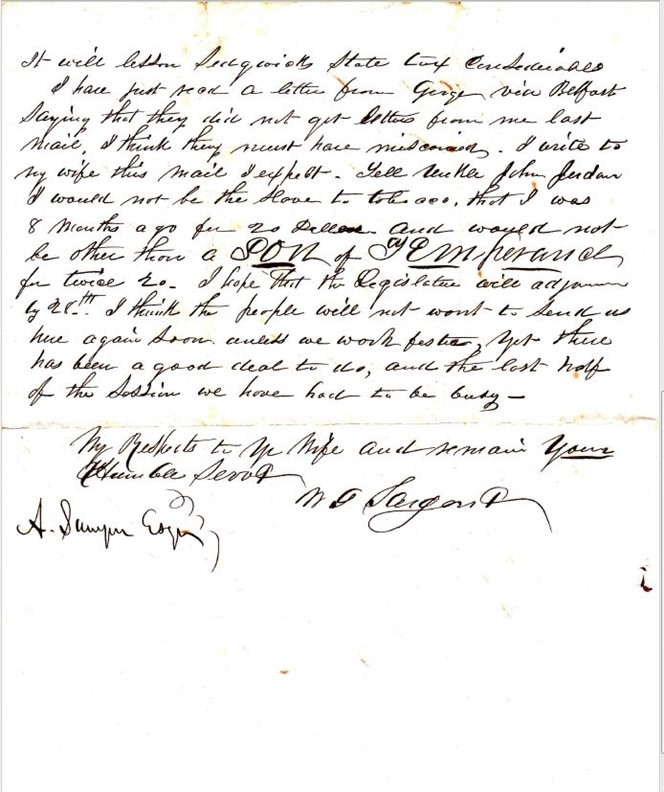 It will lesson Sedgwicks State tax Considerable
I have just recd a letter from Gorge via Belfast
Saying that they did not get letters from me last
Mail, I think they must have miscarried. I write to
my wife this mail I expect. Tell Unkle John Jordan
I would not be the Slave to tobacco, that I was
8 Months ago for 20 Dollars. And would not
be other than a SON of TEMperance
for twice 20. I hope that the Legislature will adjourn
by 28th. I think the people will not want to Send us
here again Soon unless we work faster, Yet there
has been a good deal to do, and the last half
of the Session we have had to be busy —
My Respects to Yr Wife and remain Your
Humble Servt
W G Sargent
A. Sawyer Esqr